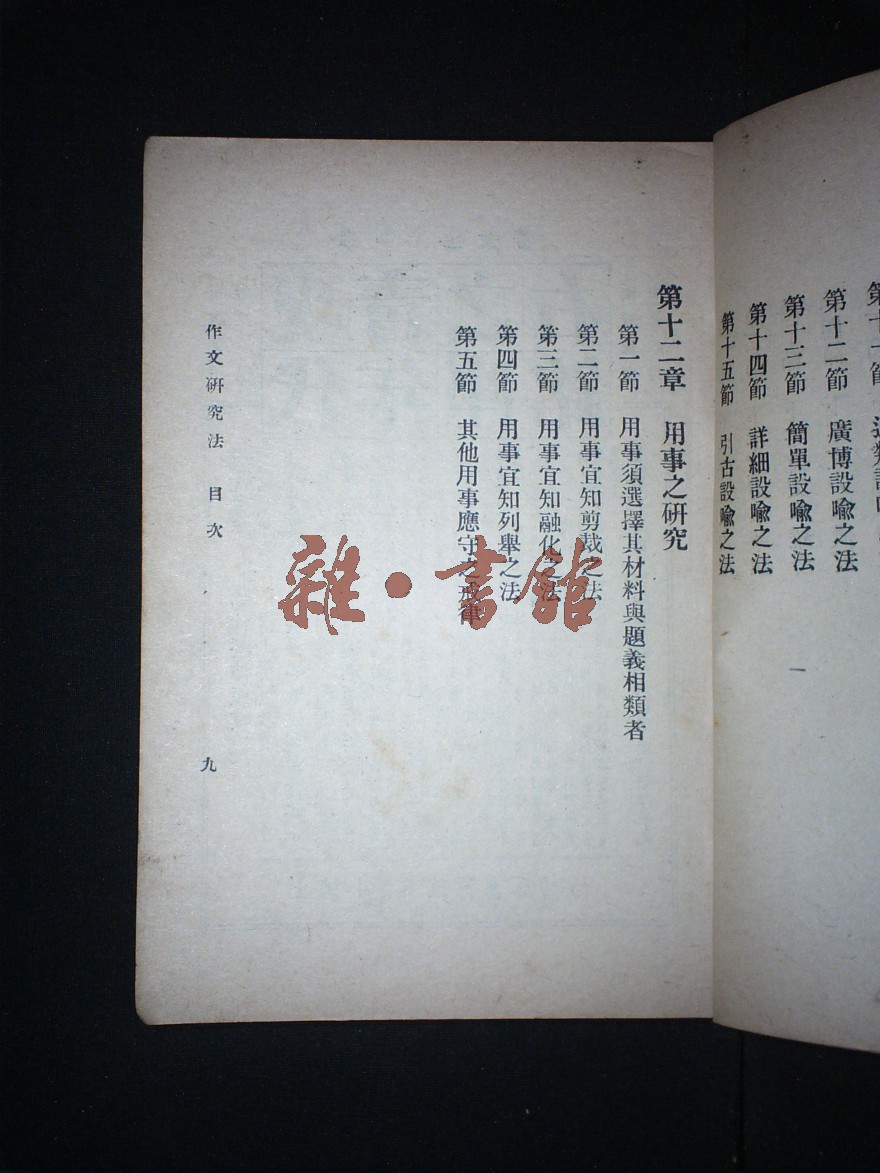 第十一節
第十二節 廣博設喩之法
第十三節 簡單設喩之法
第十四節 詳細設喩之法
第十五節 引古設喩之法
一
第十二章 用事之研究
第一節 用事須選擇其材料與題義相類者
第二節 用事宜知剪裁之法
第三節 用事宜知融化之法
第四節 用事宜知列舉之法
第五節 其他用事應守之戒律
作文研究法 目次
九
雜·書館